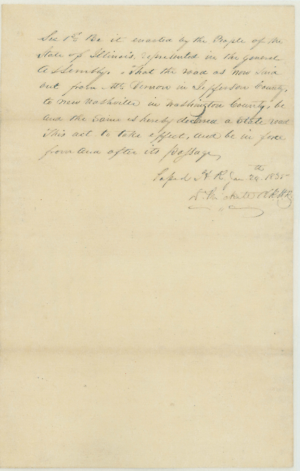 Sec 1st Be it enacted by the People of the
State of Illinois represented in the general
Assembly. That the road as now laid
out from Mt Vernon in Jefferson County,
to new Nashville in Washington County, be
and the same is hereby declared a State road
This act to take effect, and be in force
from and after its passage
Passed H. R. Jan 24th 1835